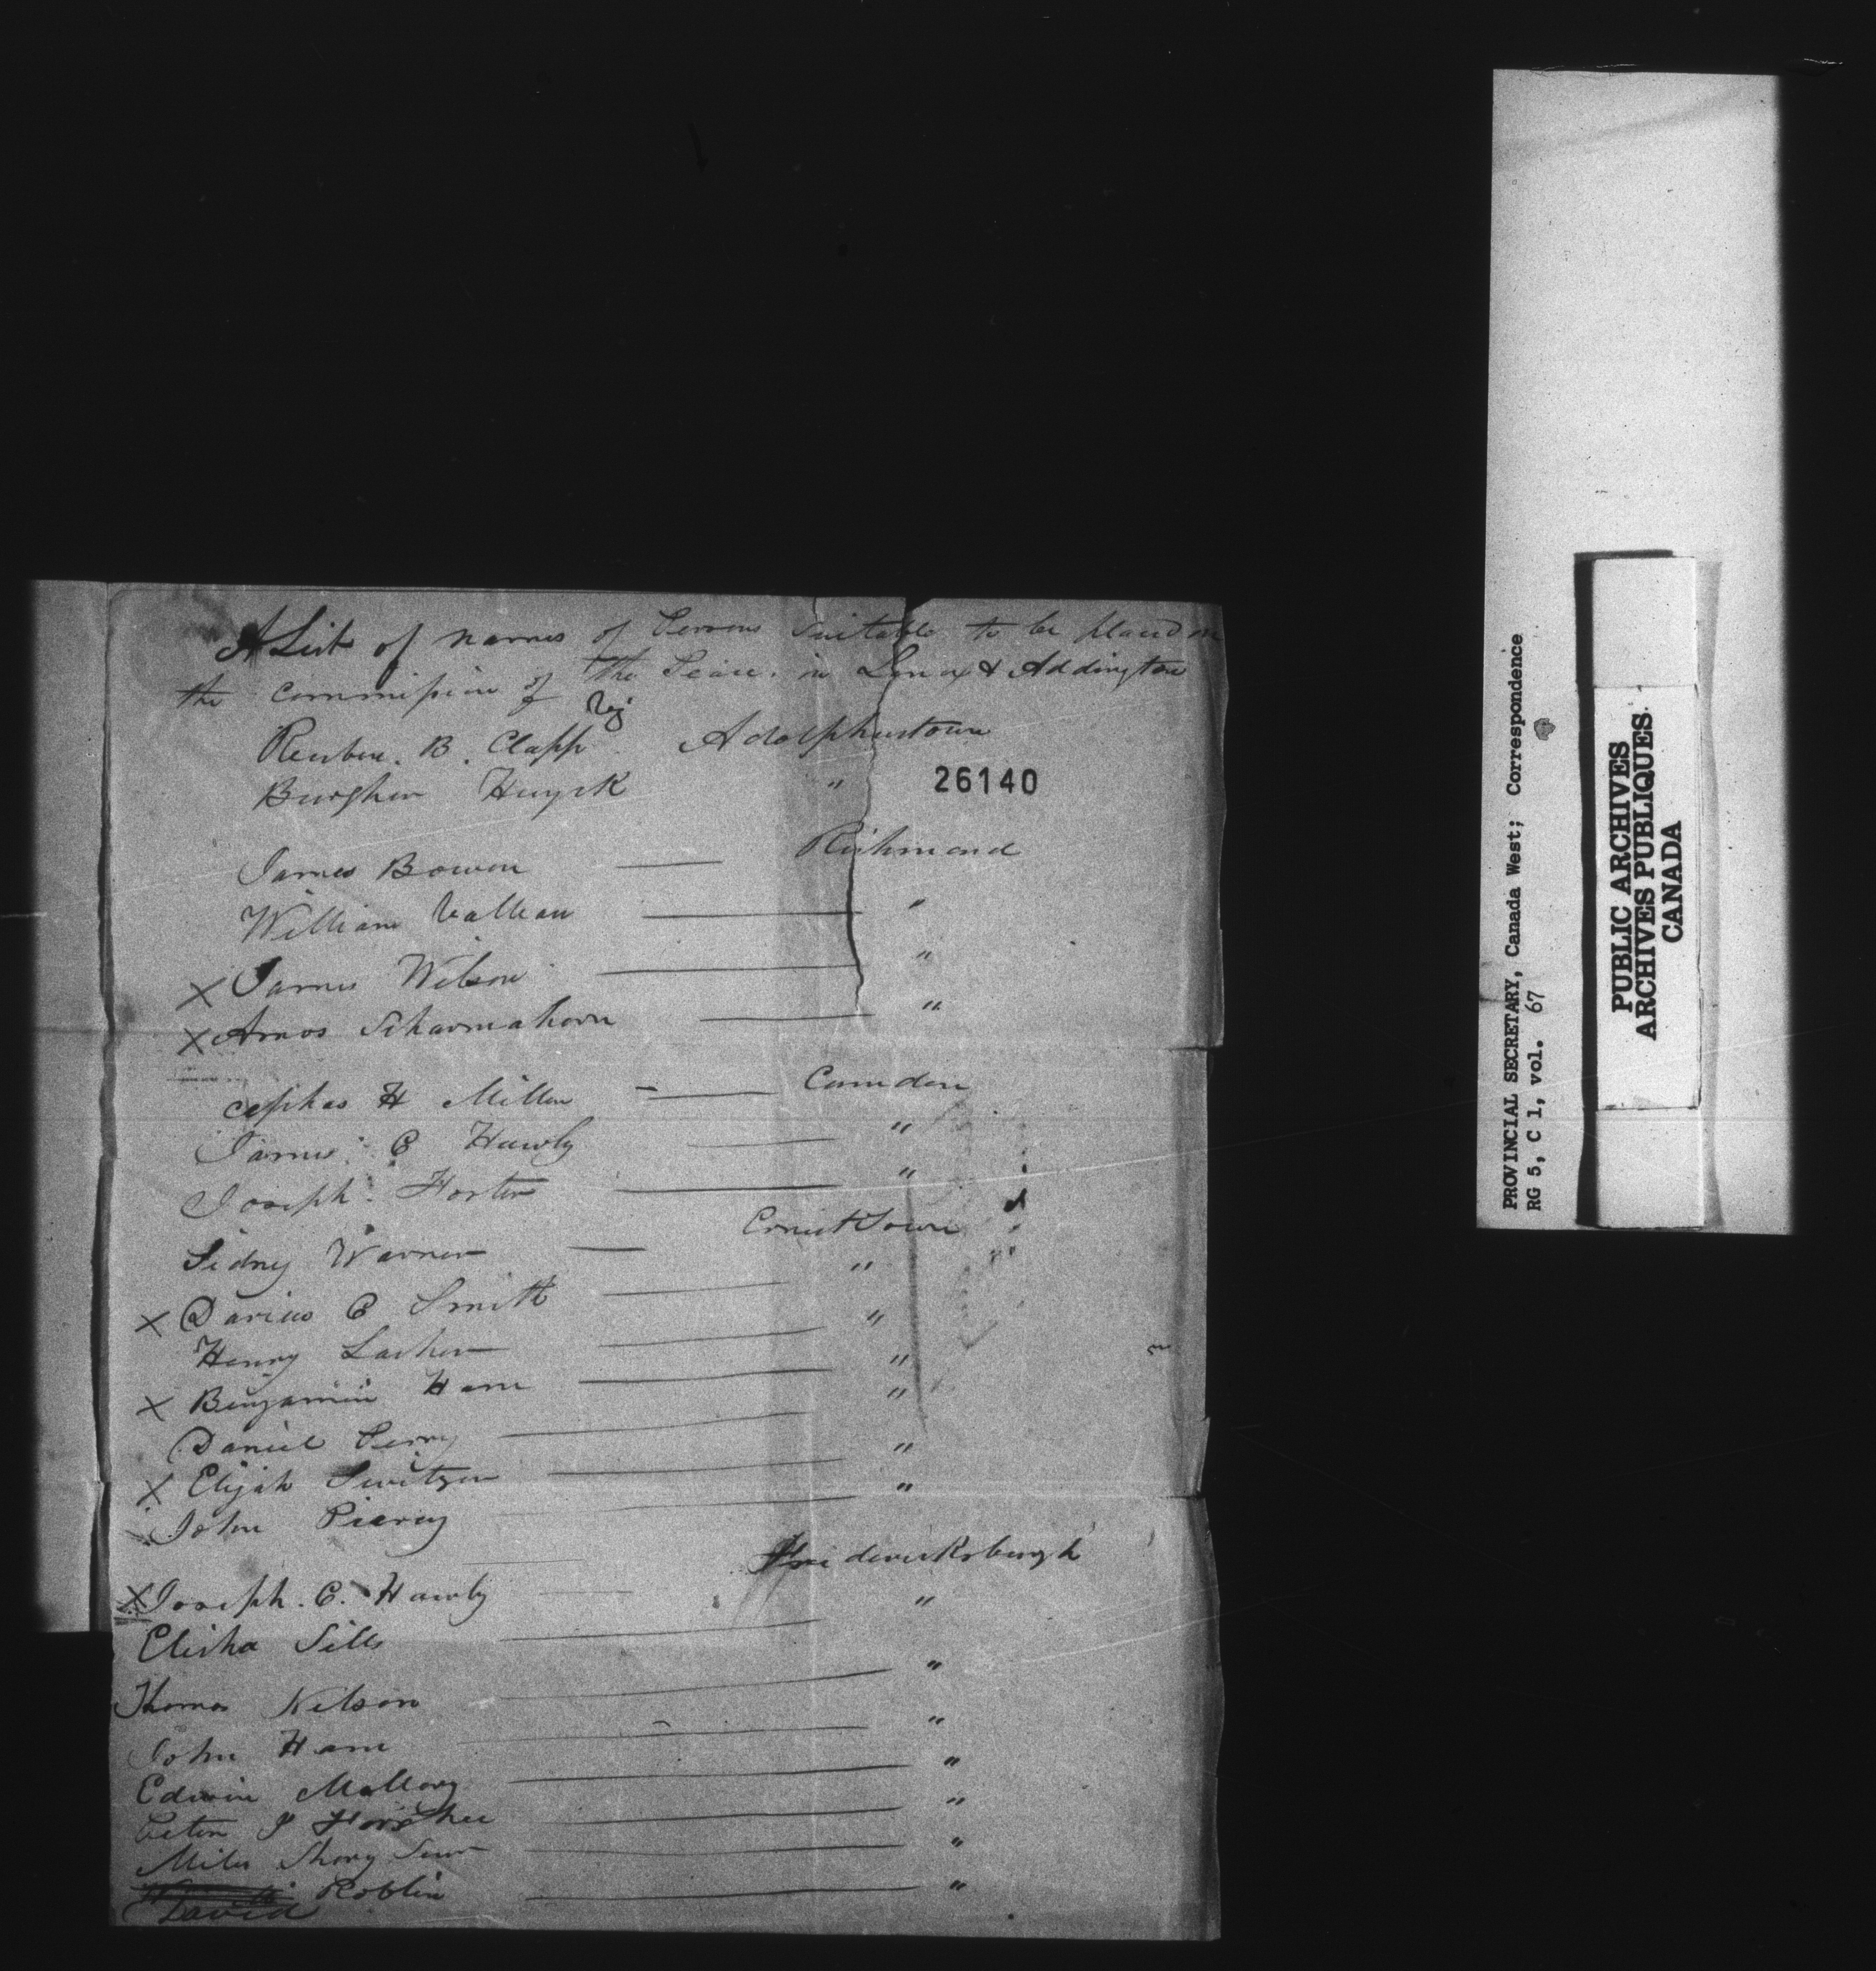 A List of names of Persons Suitable to be placed on
the commission of the Peace. in Lenox & Addington
Reuben. B. Clapp Esq Adolphustown
Burgher Huyck "
26140
James Bowen — Richmond
William Valleau — "
X James Wilson — "
X Amos Scharmahorn — "
Cephas H Miller — Camden
James C Hawly — "
Joseph Foster — "
Sidney Warner — Ernest Town
X Darius C Smith — "
Henry Lasher — "
X Benjamin Ham — "
Daniel Perry — "
X Elijah Switzer — "
John Piercy — "
X Joseph. C. Hawly — Fredericksburgh
Elisha Sills — "
Thomas Nelson — "
John Ham — "
Edwin Mallory — "
Peter — "
Miles Shory Senr — "
David Roblin — "
PROVINCIAL SECRETARY, Canada West; Correspondence
RG 5, C 1, vol. 67
PUBLIC ARCHIVES
ARCHIVES PUBLIQUES
CANADA